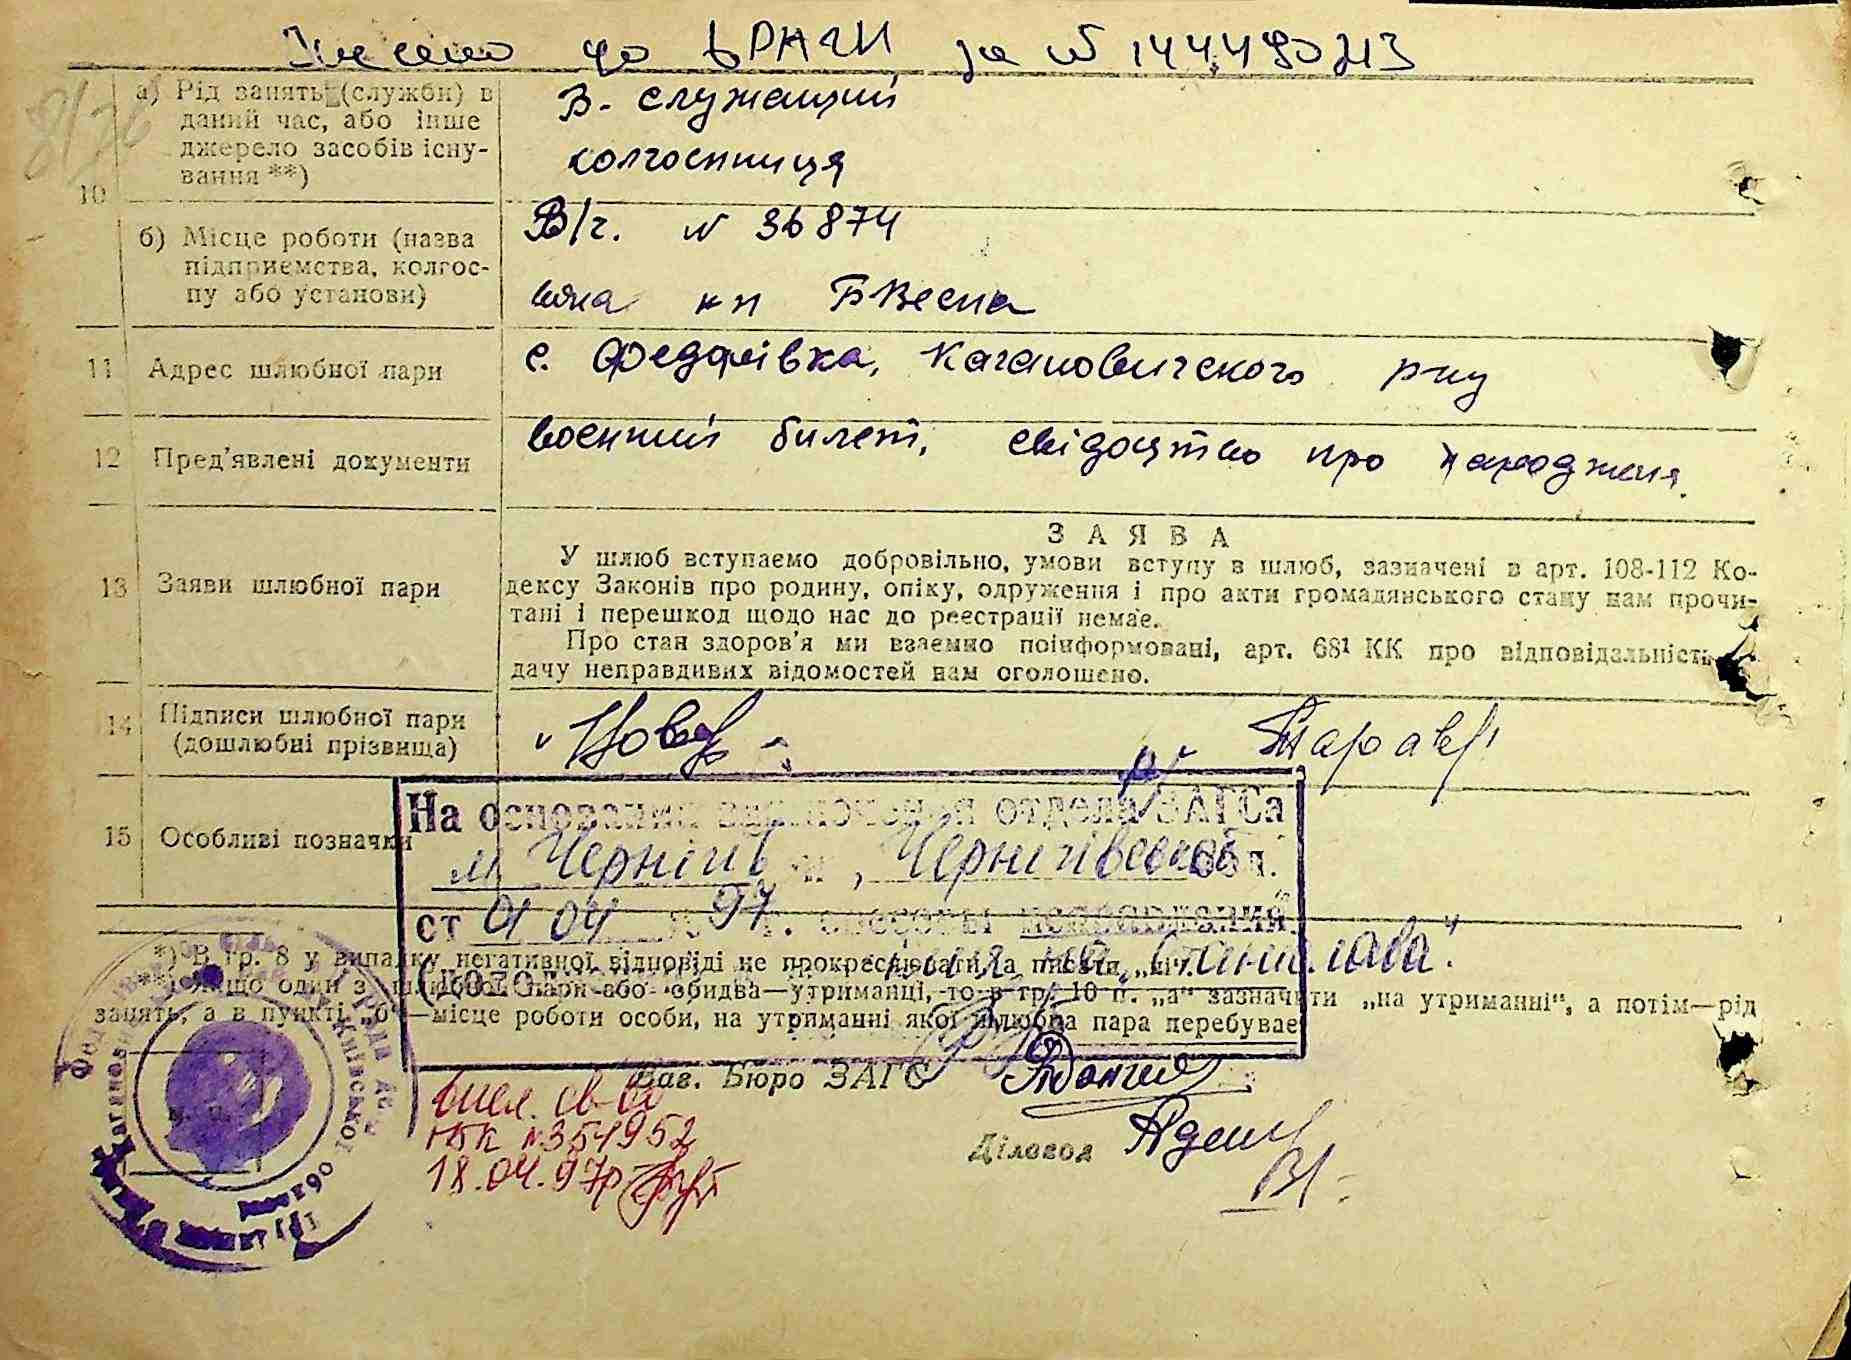 Внесено до ДРАЦС за № 144490213
а) Рід занять (служби) в
даний час, або інше
джерело засобів існу-
вання **)
10
В- служащий
колгоспниця
б) Місце роботи (назва
підприємства, колгос-
пу або установи)
В/ч. N 36874
кп
11 Адрес шлюбної пари
с. Федорівка, Кагановичского р-ну
12 Пред'явлені документи
воєнний билет, свідоцтво про народженя.
13 Заяви шлюбної пари
ЗАЯВА
У шлюб вступаємо добровільно, умови вступу в шлюб, зазначені в арт. 108-112 Ко-
дексу Законів про родину, опіку, одруження і про акти громадянського стану нам прочи-
тані і перешкод щодо нас до реєстрації немає.
Про стан здоров'я ми взаємно поінформовані, арт. 68¹ КК про відповідальність
дачу неправдивих відомостей нам оголошено.
14 Підписи шлюбної пари
(дошлюбні прізвища)
15 Особливі позначки
На основании заключения отдела ЗАГСа
м Чернігів, Чернігівської обл.
от 04 97 г. исправления
"Станислава".
*) В гр. 8 у випадку негативної відповіді не прокреслювати, а писати „ні“
**) Якщо один з шлюбної пари або обидва—утриманці, то в гр. 10 п. „а“ зазначити „на утриманні“, а потім—рід
занять, а в пункті „б“—місце роботи особи, на утриманні якої шлюбна пара перебуває
Зав. Бюро ЗАГС
N 351952
18.04.97р
Діловод
м. п.
Київської